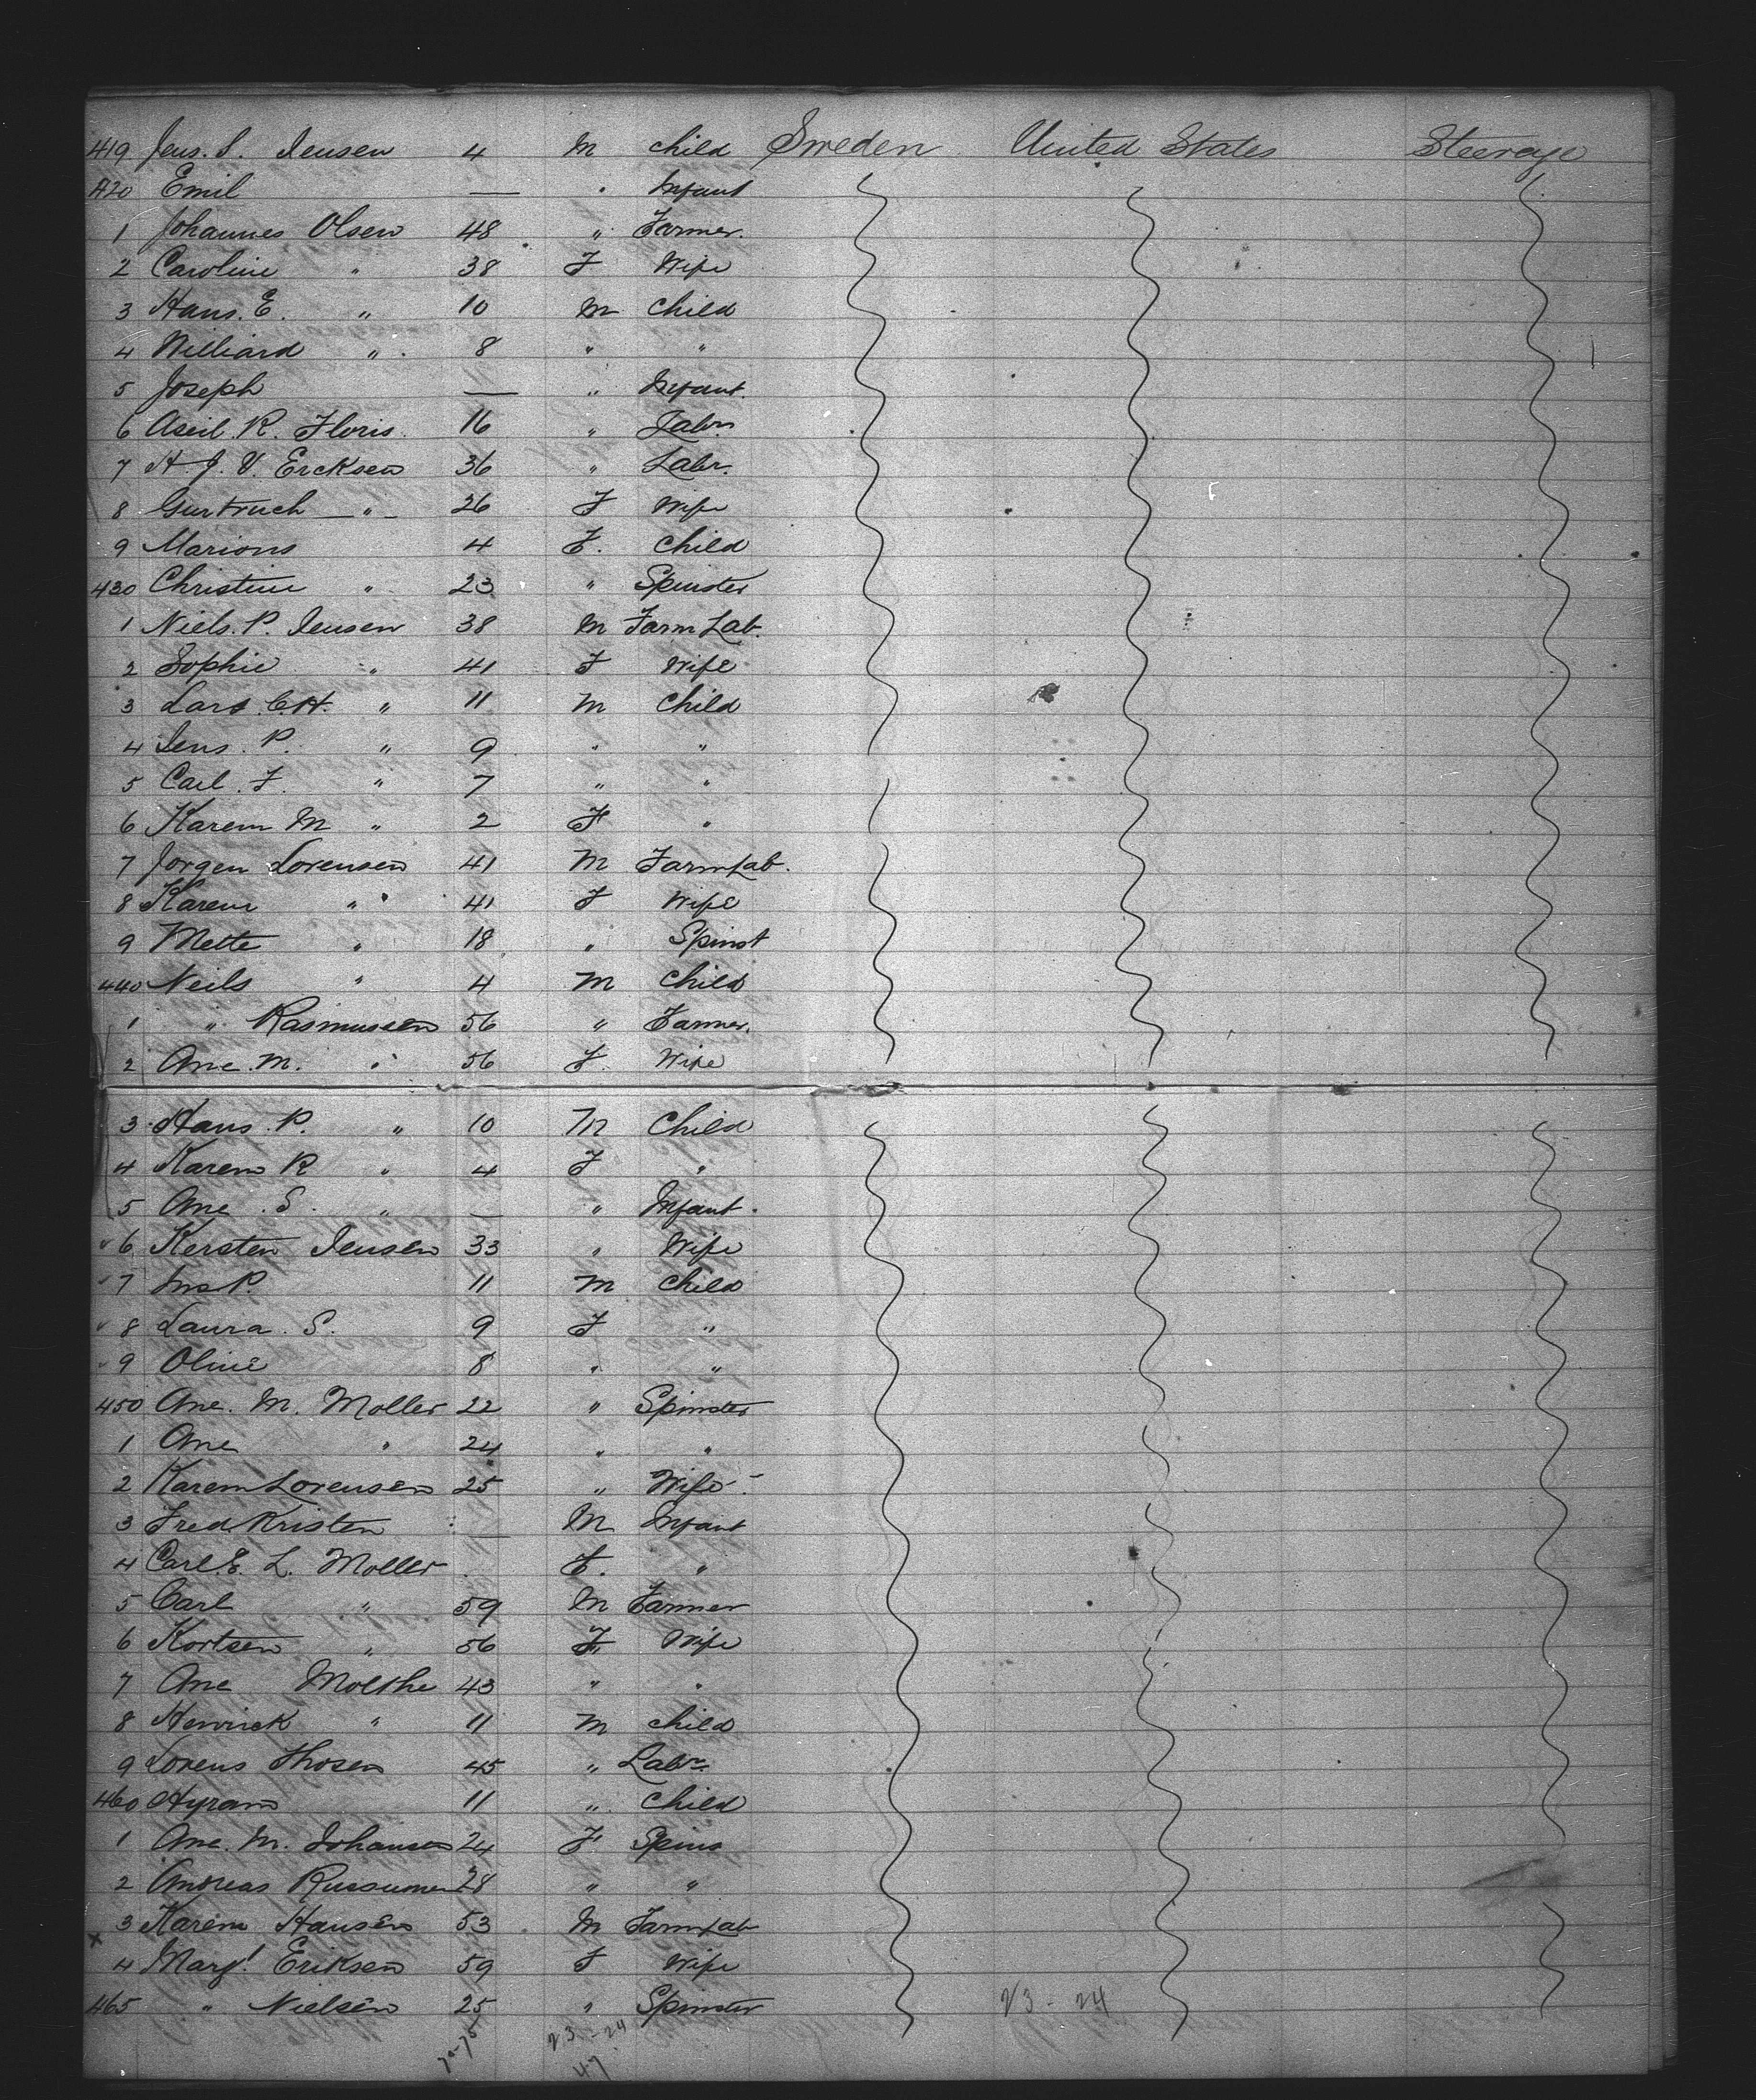 419 Jens. S. Jensen 4 M child Sweden United States Steerage
420 Emil — " Infant
1 Johannes Olsen 48 " Farmer.
2 Caroline " 38 F Wife
3 Hans. E. " 10 M Child
4 Williard " 8 " "
5 Joseph — " Infant.
6 Axeil R. Floris. 16 " Labr.
7 H J. V. Ercksen 36 " Labr.
8 Gurtruch — " — 26 F Wife
9 Marions 4 F. Child
430 Christine " 23 " Spinster
1 Niels. P. Jensen 38 M Farm Lab.
2 Sophie " 41 F Wife
3 Lars C.H. " 11 M Child
4 Jens. P. " 9 " "
5 Carl. F. " 7 " "
6 Karem M " 2 F "
7 Jorgen Lorensen 41 M Farm Lab.
8 Karem " 41 F Wife
9 Mette " 18 " Spinst
440 Neils " 4 M Child
1 " Rasmussen 56 " Farmer.
2 Ane. M. " 56 F. Wife
3 Hans. P. " 10 M Child
4 Karem R " 4 F "
5 Ane. S. " — " Infant.
6 Kersten Jensen 33 " Wife
7 P. 11 M Child
8 Laura. S. 9 F "
9 Oline 8 " "
450 Ane. M. Moller 22 " Spinster
1 Ane " 24 " "
2 Karem Lorensen 25 " Wife
3 Fred Kristen — M Infant
4 Carl. E. L. Moller F. "
5 Carl " 59 M Farmer
6 Kortsen " 56 F Wife
7 Ane Molthe 43 " "
8 Henrick " 11 M child
9 Lorens Thosen 45 " Labr.
460 Hyram 11 " Child
1 Ane. M. Johansen 24 F Spins
2 Andreas 28 " "
x 3 Karem Hansen 53 M Farm Lab
4 Margt Eriksen 59 F Wife
465 " Nielsen 25 " Spinster 23 - 24
70-75 23 - 24
47